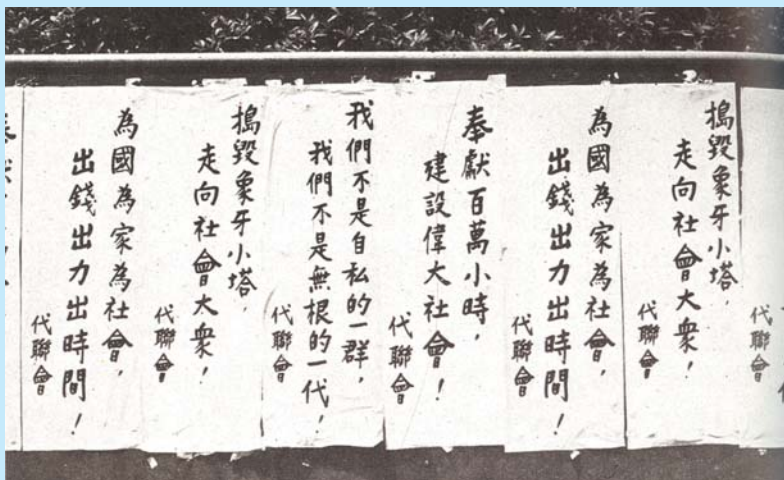 代聯會
搗毀象牙小塔，
走向社會大衆！
代聯會
為國為家為社會，
出錢出力出時間！
代聯會
奉獻百萬小時，
建設偉大社會！
代聯會
我們不是自私的一群，
我們不是無根的一代！
代聯會
搗毀象牙小塔，
走向社會大衆！
代聯會
為國為家為社會，
出錢出力出時間！
代聯會